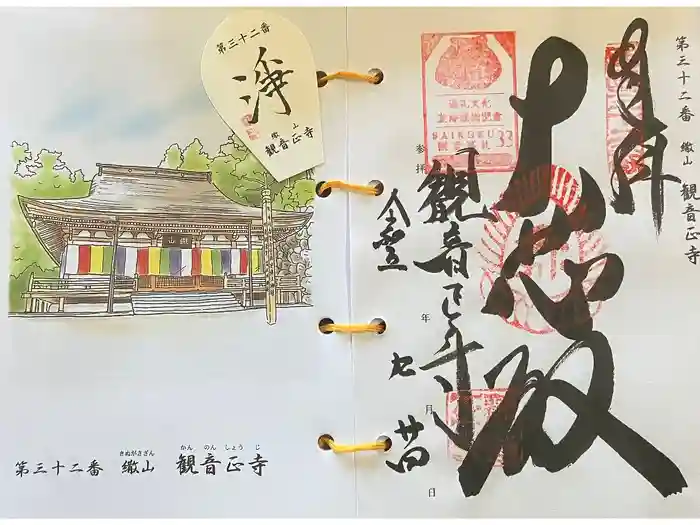 第三十二番
浄
繖山
観音正寺
きぬがさざん かんのんしょうじ
第三十二番 繖山 観音正寺
第三十二番 繖山 観音正寺
奉拝
大悲殿
SAIKOKU 33
観音正寺
参拝
年
七
月
廿四
日